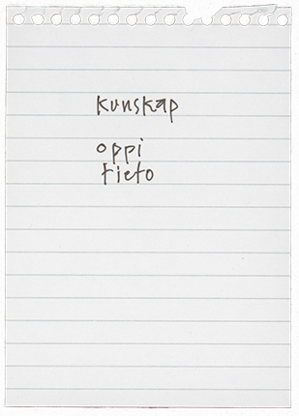 kunskap
oppi
tieto